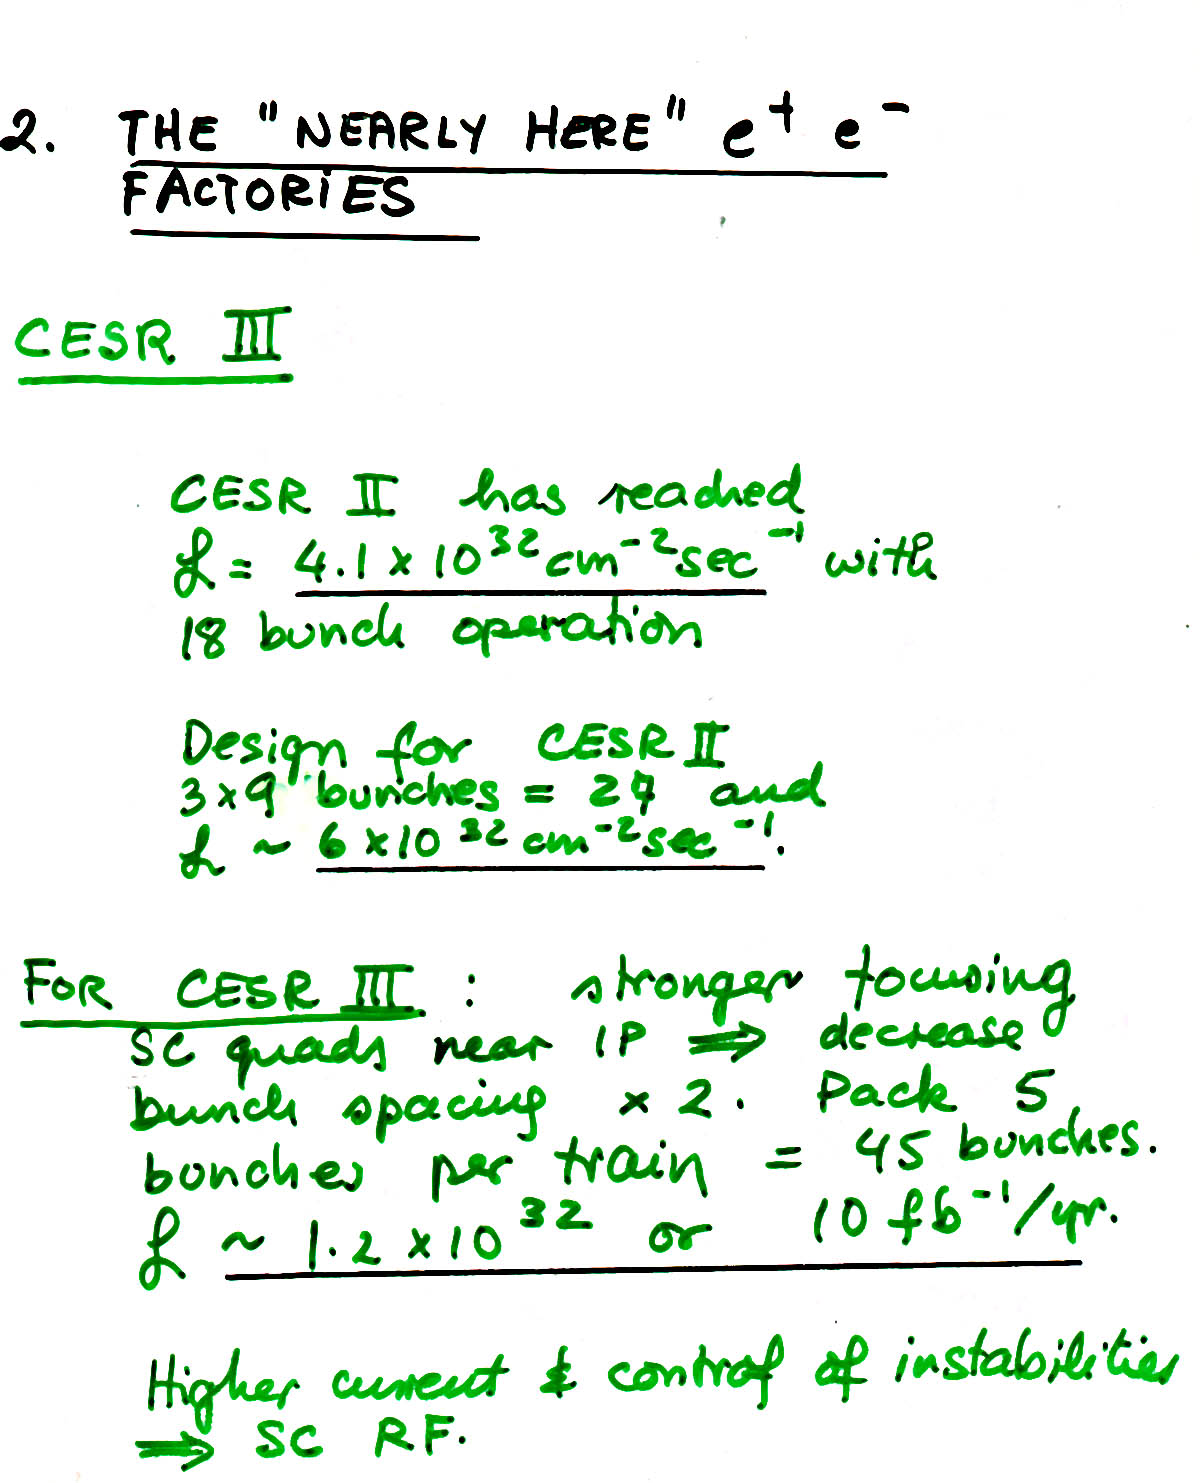 2. THE "NEARLY HERE" e⁺ e⁻
FACTORIES
CESR III
CESR II has reached
ℒ = 4.1 x 10³² cm⁻² sec⁻¹ with
18 bunch operation
Design for CESR II
3x9 bunches = 27 and
ℒ ~ 6 x 10³² cm⁻² sec⁻¹.
FOR CESR III : stronger focusing
SC quads near IP ⇒ decrease
bunch spacing x 2. Pack 5
bunches per train = 45 bunches.
ℒ ~ 1.2 x 10³² or 10 fb⁻¹/yr.
Higher current & control of instabilities
⇒ SC RF.